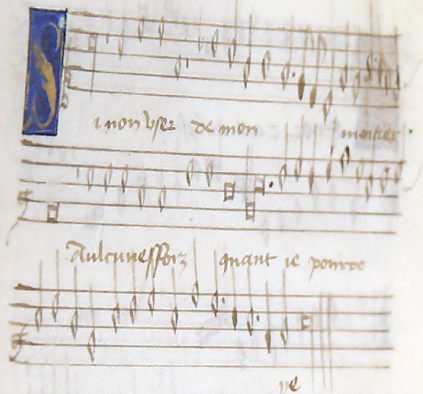 Sinon user de mon mestier
Aulcunesfoiz quant ie pourroe
ye